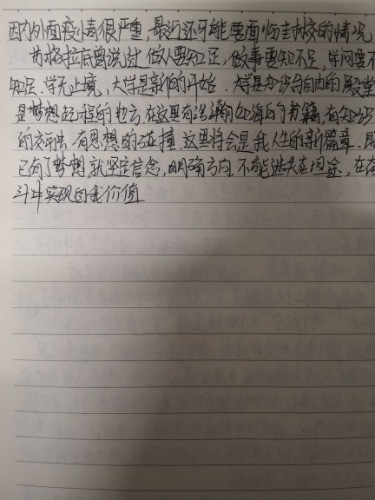 因为外面疫情很严重,最近还可能要面临封校的情况
格拉底曾说过:做人要知足,做事要知不足,学问要不
知足,学无止境,大学是新的开始,大学是知识与自由的殿堂
是梦想起程的地方,在这里有浩瀚如海的书籍,有知识
的,有思想的碰撞,这里将会是我人生的新篇章,
已有了梦想就坚定信念,明确方向,不能迷失在,在奋
斗中实现自我价值